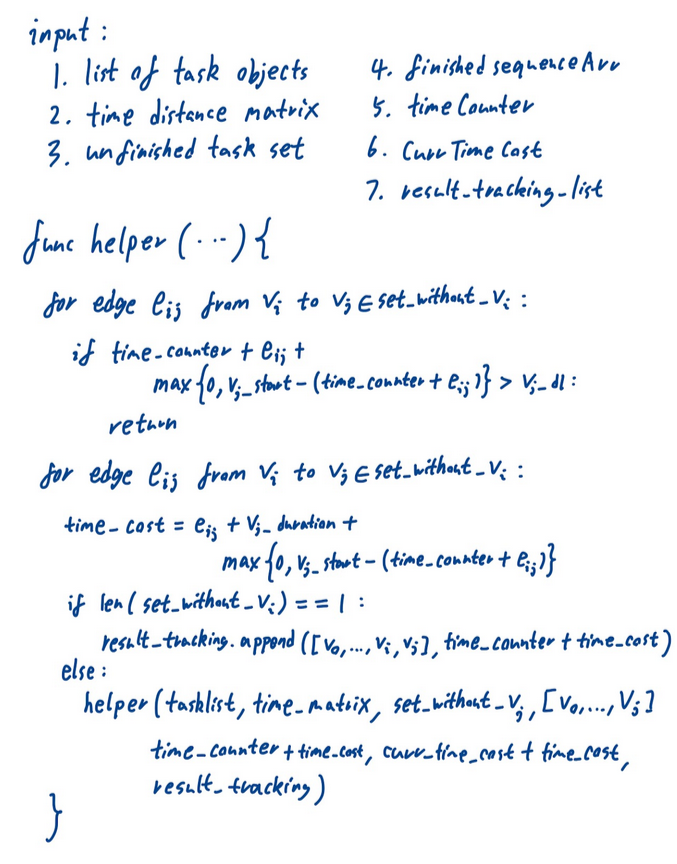 input :
1. list of task objects
2. time distance matrix
3. unfinished task set
4. finished sequenceArr
5. timeCounter
6. CurrTimeCost
7. result_tracking_list
func helper (...) {
for edge eij from vi to vj ∈ set_without_vi :
if time_counter + eij +
max{0, vj_start - (time_counter + eij)} > vj_dl :
return
for edge eij from vi to vj ∈ set_without_vi :
time_cost = eij + vj_duration +
max{0, vj_start - (time_counter + eij)}
if len(set_without_vi) == 1 :
result_tracking.append([v0,...,vi,vj], time_counter + time_cost)
else :
helper(tasklist, time_matrix, set_without_vj, [v0,...,vj]
time_counter + time_cost, curr_time_cost + time_cost,
result_tracking)
}